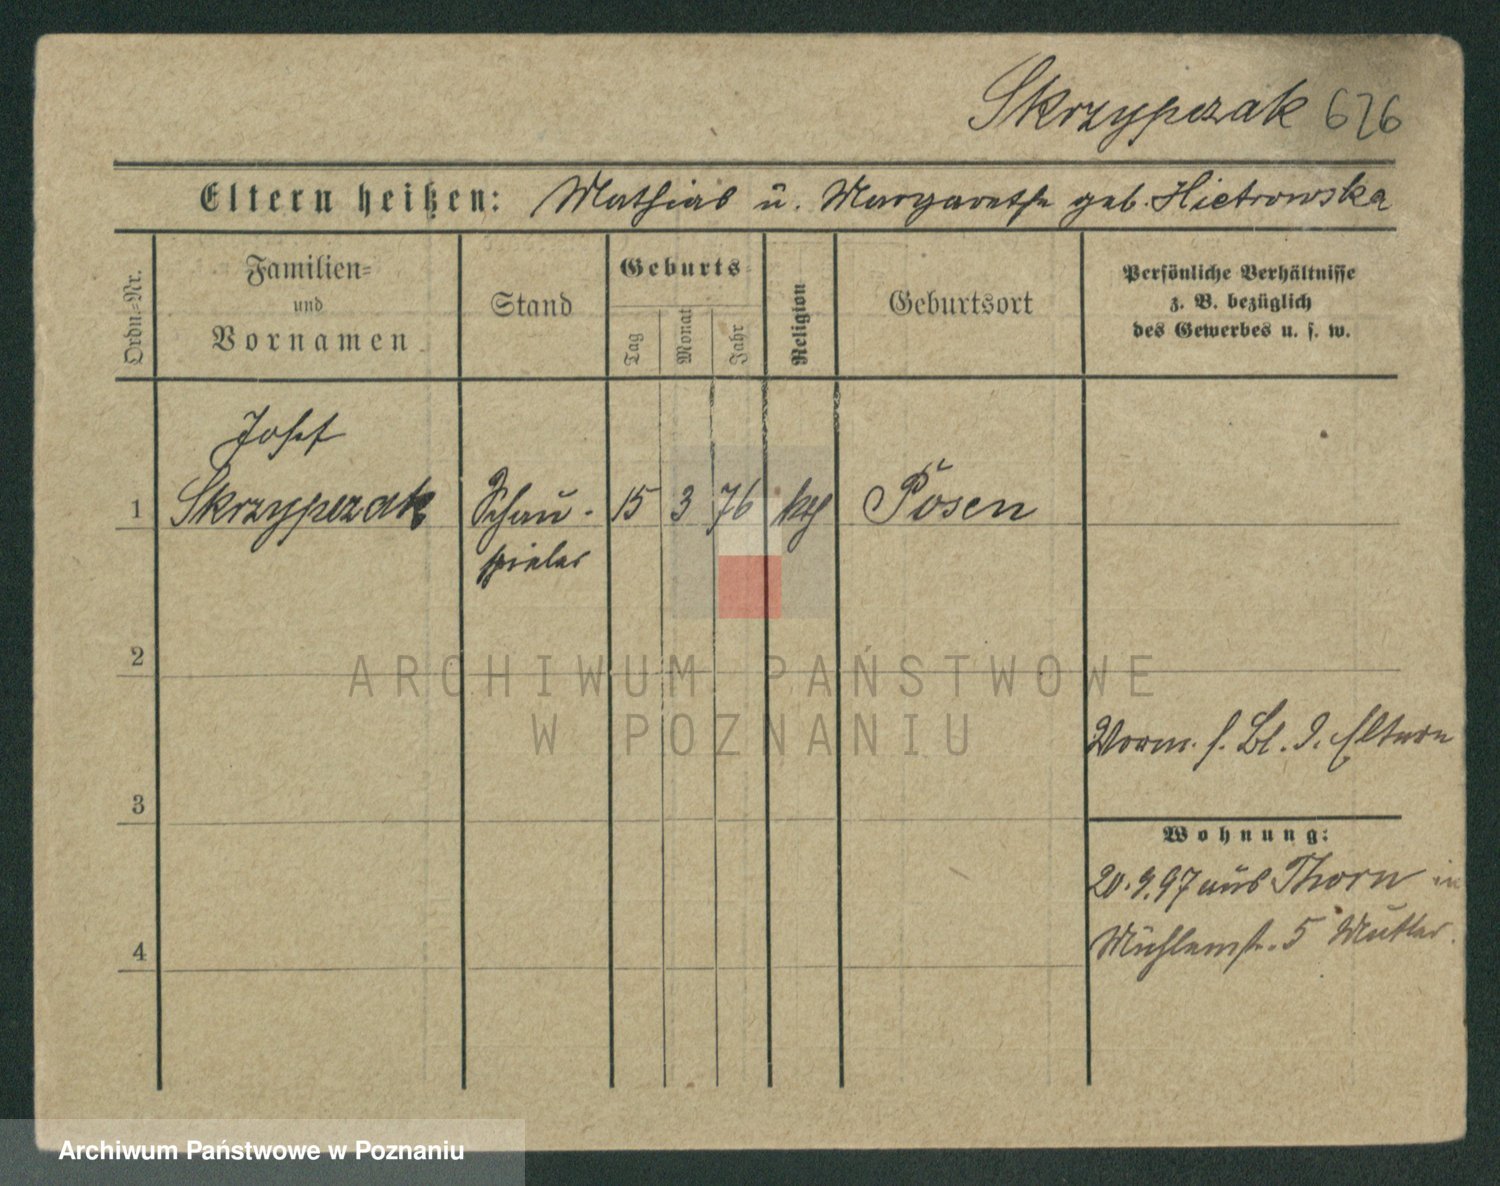 Skrzypczak 626
Eltern heißen: Mathias u. Margarethe geb. Hietrowska
Ordn.=Nr.
Familien=
und
Vornamen
Stand
Geburts=
Tag
Monat
Jahr
Religion
Geburtsort
Persönliche Verhältnisse
z. B. bezüglich
des Gewerbes u. s. w.
Josef
1 Skrzypczak Schau- 15 3 76 kth Posen
spieler
2
ARCHIWUM PAŃSTWOWE
W POZNANIU
Vorm. s. Bl. d. Eltern
3
Wohnung:
20.9.97 aus Thorn in
Mühlenstr. 5 Mutter.
4
Archiwum Państwowe w Poznaniu